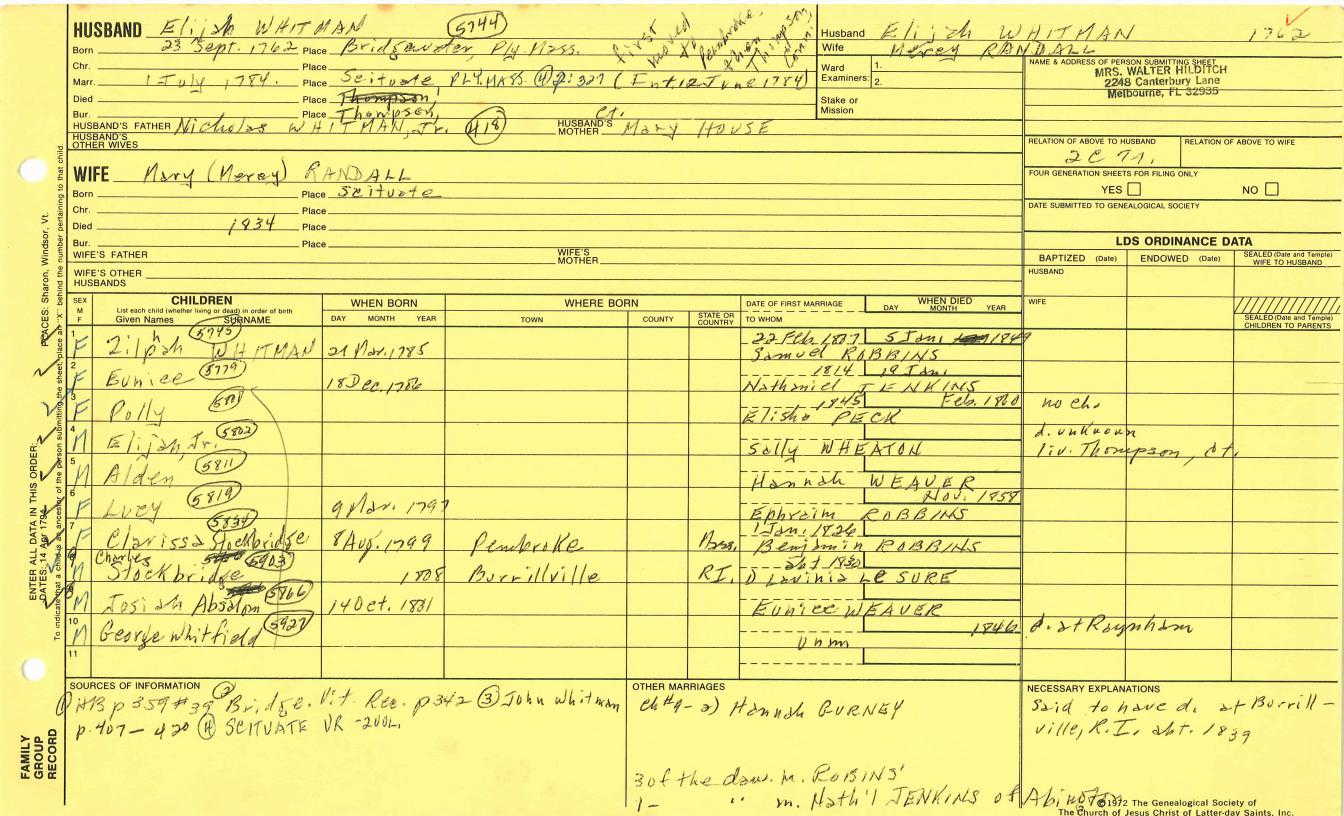 HUSBAND Elijah WHITMAN 5744
Born 23 Sept. 1762 Place Bridgewater, Ply. Mass.
first moved to Pembroke, then Thompson, Conn.
Chr. Place
Marr. 1 July, 1784. Place Scituate PLY. MASS. (4) 2:327 (Int. 12 June 1784)
Died Place Thompson,
Bur. Place Thompson, Ct.
HUSBAND'S FATHER Nicholas WHITMAN, Jr. 418 HUSBAND'S MOTHER Mary HOUSE
HUSBAND'S OTHER WIVES
Husband Elijah WHITMAN 1762
Wife Mercy RANDALL
Ward 1.
Examiners: 2.
Stake or Mission
NAME & ADDRESS OF PERSON SUBMITTING SHEET
MRS. WALTER HILDITCH
2248 Canterbury Lane
Melbourne, FL 32935
RELATION OF ABOVE TO HUSBAND RELATION OF ABOVE TO WIFE
FOUR GENERATION SHEETS FOR FILING ONLY
YES NO
DATE SUBMITTED TO GENEALOGICAL SOCIETY
WIFE Mary (Mercy) RANDALL
Born Place Scituate
Chr. Place
Died 1834 Place
Bur. Place
WIFE'S FATHER WIFE'S MOTHER
WIFE'S OTHER HUSBANDS
LDS ORDINANCE DATA
BAPTIZED (Date) ENDOWED (Date) SEALED (Date and Temple) WIFE TO HUSBAND
HUSBAND
WIFE
SEALED (Date and Temple) CHILDREN TO PARENTS
SEX M F CHILDREN WHEN BORN WHERE BORN DATE OF FIRST MARRIAGE WHEN DIED
List each child (whether living or dead) in order of birth DAY MONTH YEAR
Given Names SURNAME DAY MONTH YEAR TOWN COUNTY STATE OR COUNTRY TO WHOM
1 F Zilpah WHITMAN 5745 21 Mar. 1785 22 Feb. 1807 5 Jan. 1849
Samuel ROBBINS
2 F Eunice 5779 18 Dec. 1786 1814 19 Jan.
Nathaniel JENKINS
3 F Polly 1845 Feb. 1860 no ch.
Elisha PECK
4 M Elijah, Jr. 5802 Sally WHEATON d. unknown
liv. Thompson, Ct.
5 M Alden 5811 Hannah WEAVER
6 F Lucy 5819 9 Mar. 1797 Nov. 1858
Ephraim ROBBINS
7 F Clarissa Stockbridge 5834 8 Aug. 1799 Pembroke Mass. 1 Jan. 1826
Benjamin ROBBINS
8 M Charles Stockbridge 5903 1808 Burrillville RI. abt 1830
D Lavinia LE SURE
M Josiah Absalom 5866 14 Oct. 1801 Eunice WEAVER
10 M George Whitfield 5927 1846 d. at Raynham
unm
11
SOURCES OF INFORMATION
(1) HB p 359 #39 (2) Bridge. Vit. Rec. p 342 (3) John Whitman
p. 407 - 420 (4) SCITUATE VR -
OTHER MARRIAGES
ch #9 - 2) Hannah GURNEY
3 of the daus. m. ROBINS'
1 - " m. Nath'l JENKINS of Abington
NECESSARY EXPLANATIONS
Said to have d. at Burrill-
ville, R.I. abt. 1839
©1972 The Genealogical Society of
The Church of Jesus Christ of Latter-day Saints, Inc.
FAMILY GROUP RECORD
ENTER ALL DATA IN THIS ORDER:
DATES: 14 Apr 1794
PLACES: Sharon, Windsor, Vt.
To indicate that a child is an ancestor of the person submitting the sheet, place an "X" behind the number pertaining to that child.